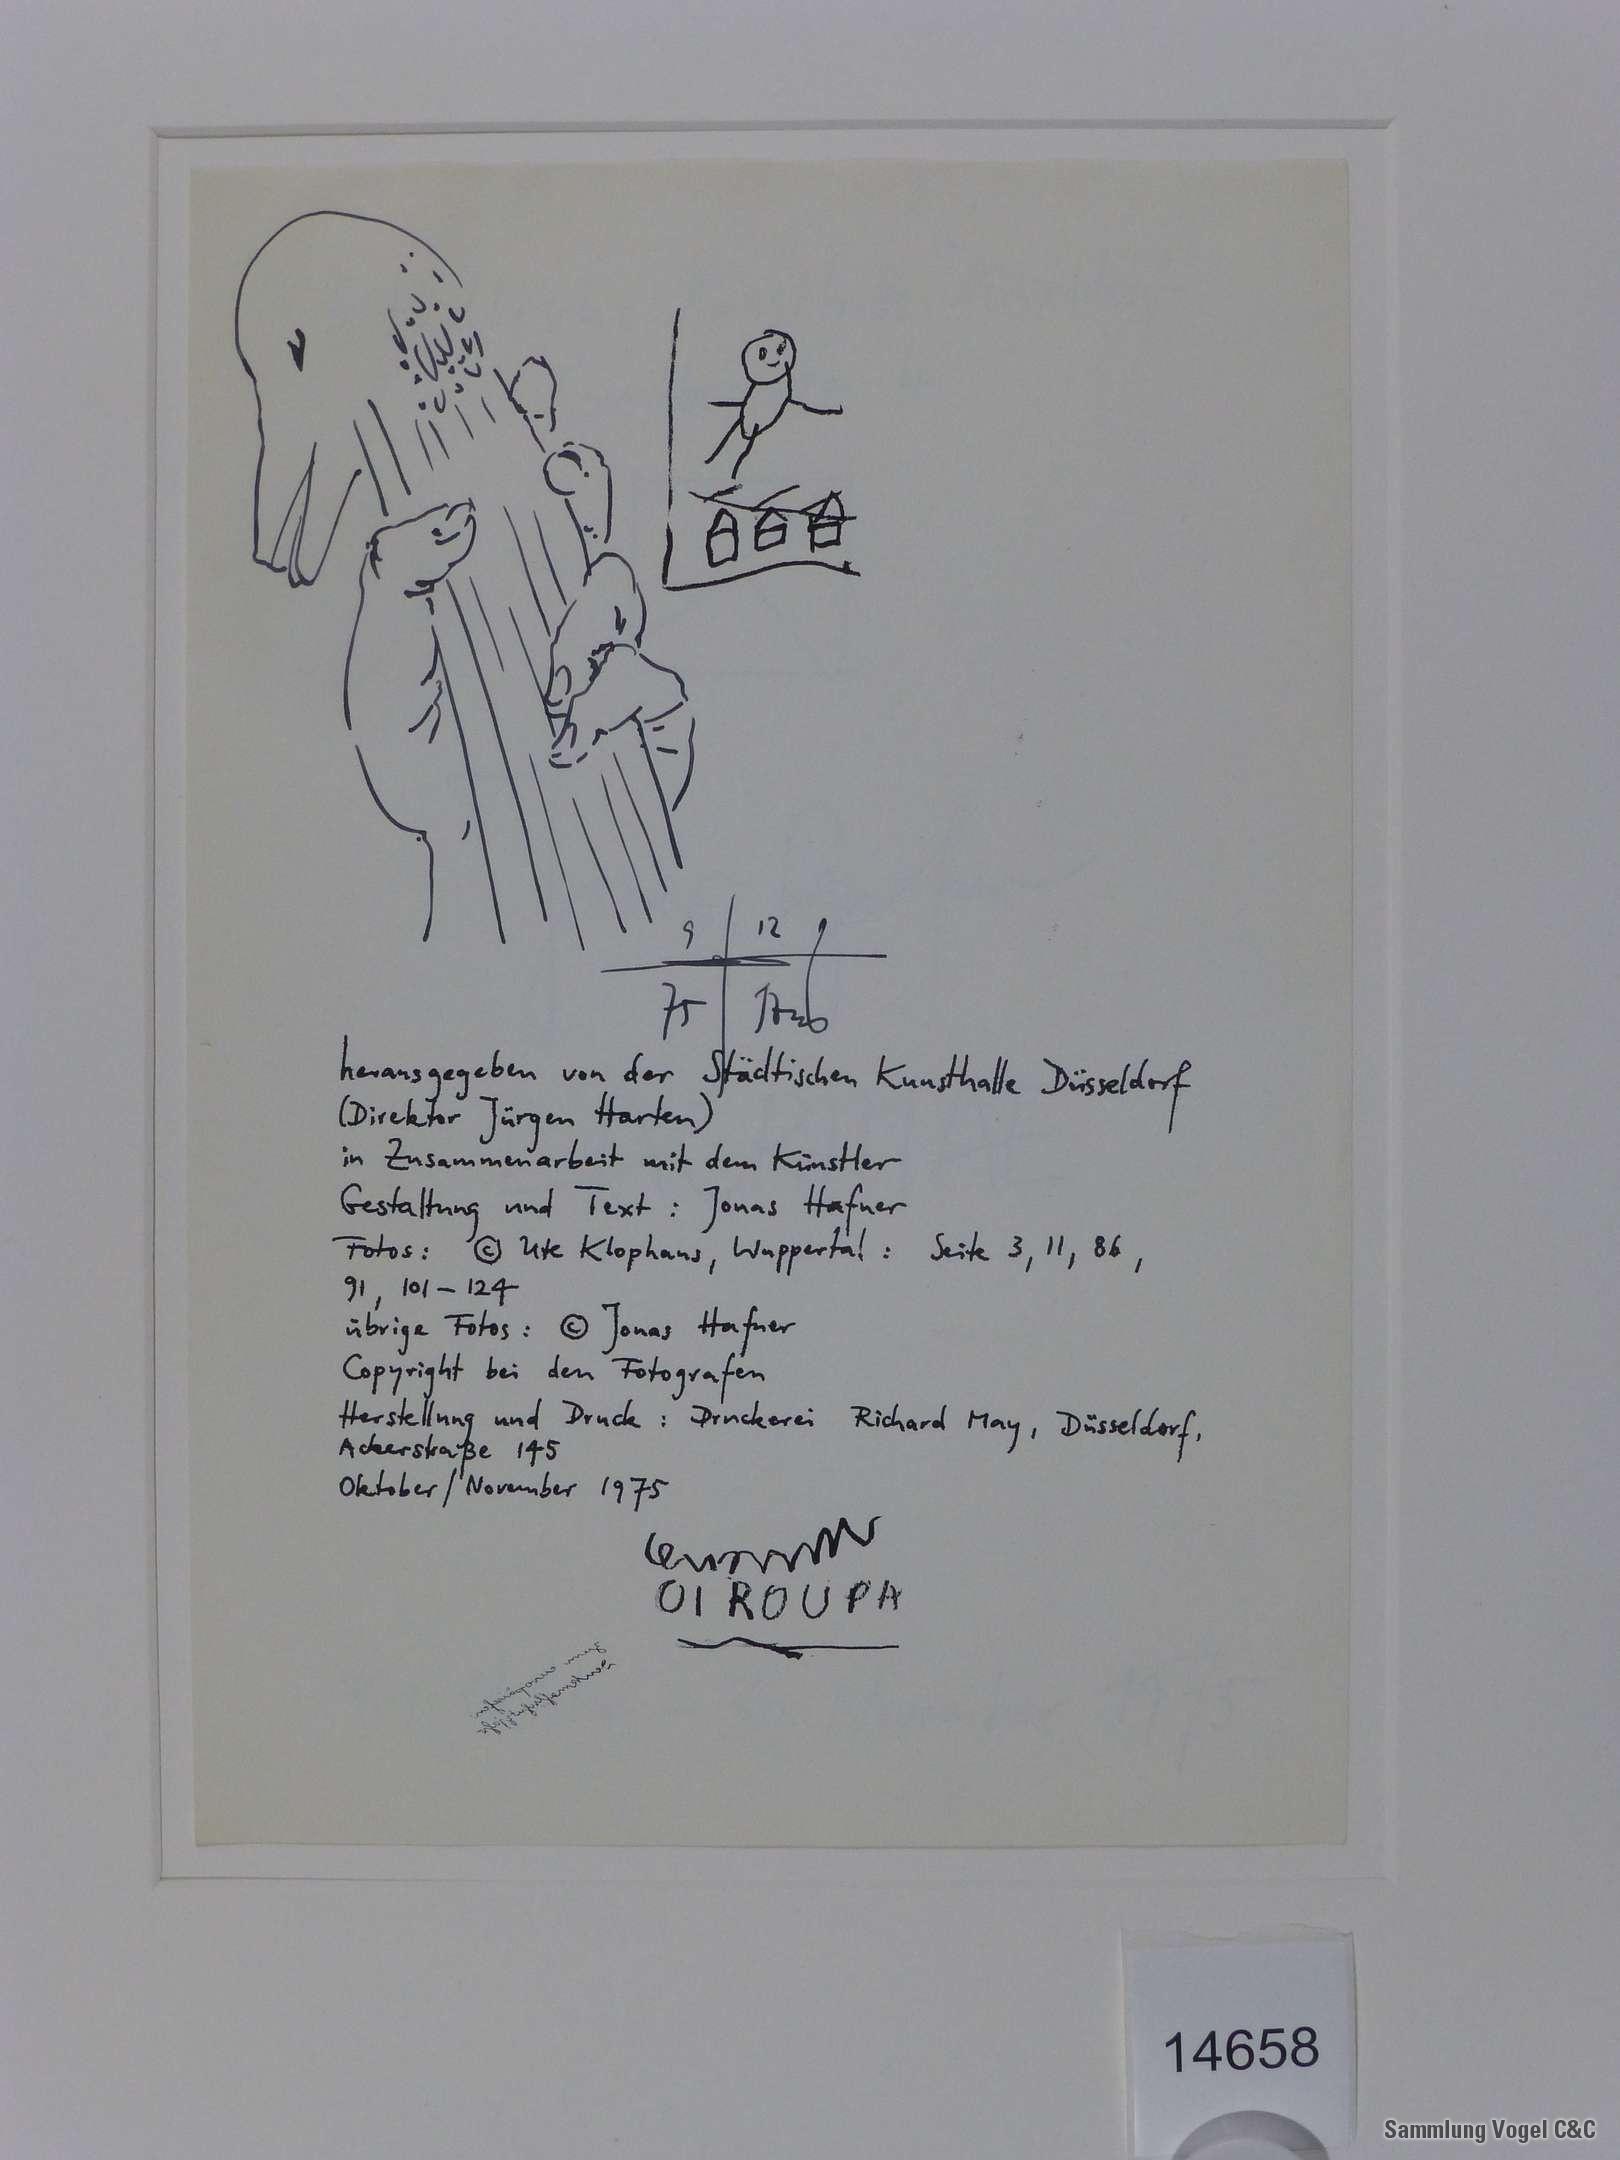 9 12
75
herausgegeben von der Städtischen Kunsthalle Düsseldorf
(Direktor Jürgen Harten)
in Zusammenarbeit mit dem Künstler
Gestaltung und Text : Jonas Hafner
Fotos : © Ute Klophaus, Wuppertal : Seite 3, 11, 86 ,
91, 101 – 124
übrige Fotos : © Jonas Hafner
Copyright bei den Fotografen
Herstellung und Druck : Druckerei Richard May, Düsseldorf,
Ackerstraße 145
Oktober / November 1975
OI ROUPA
14658
Sammlung Vogel C&C